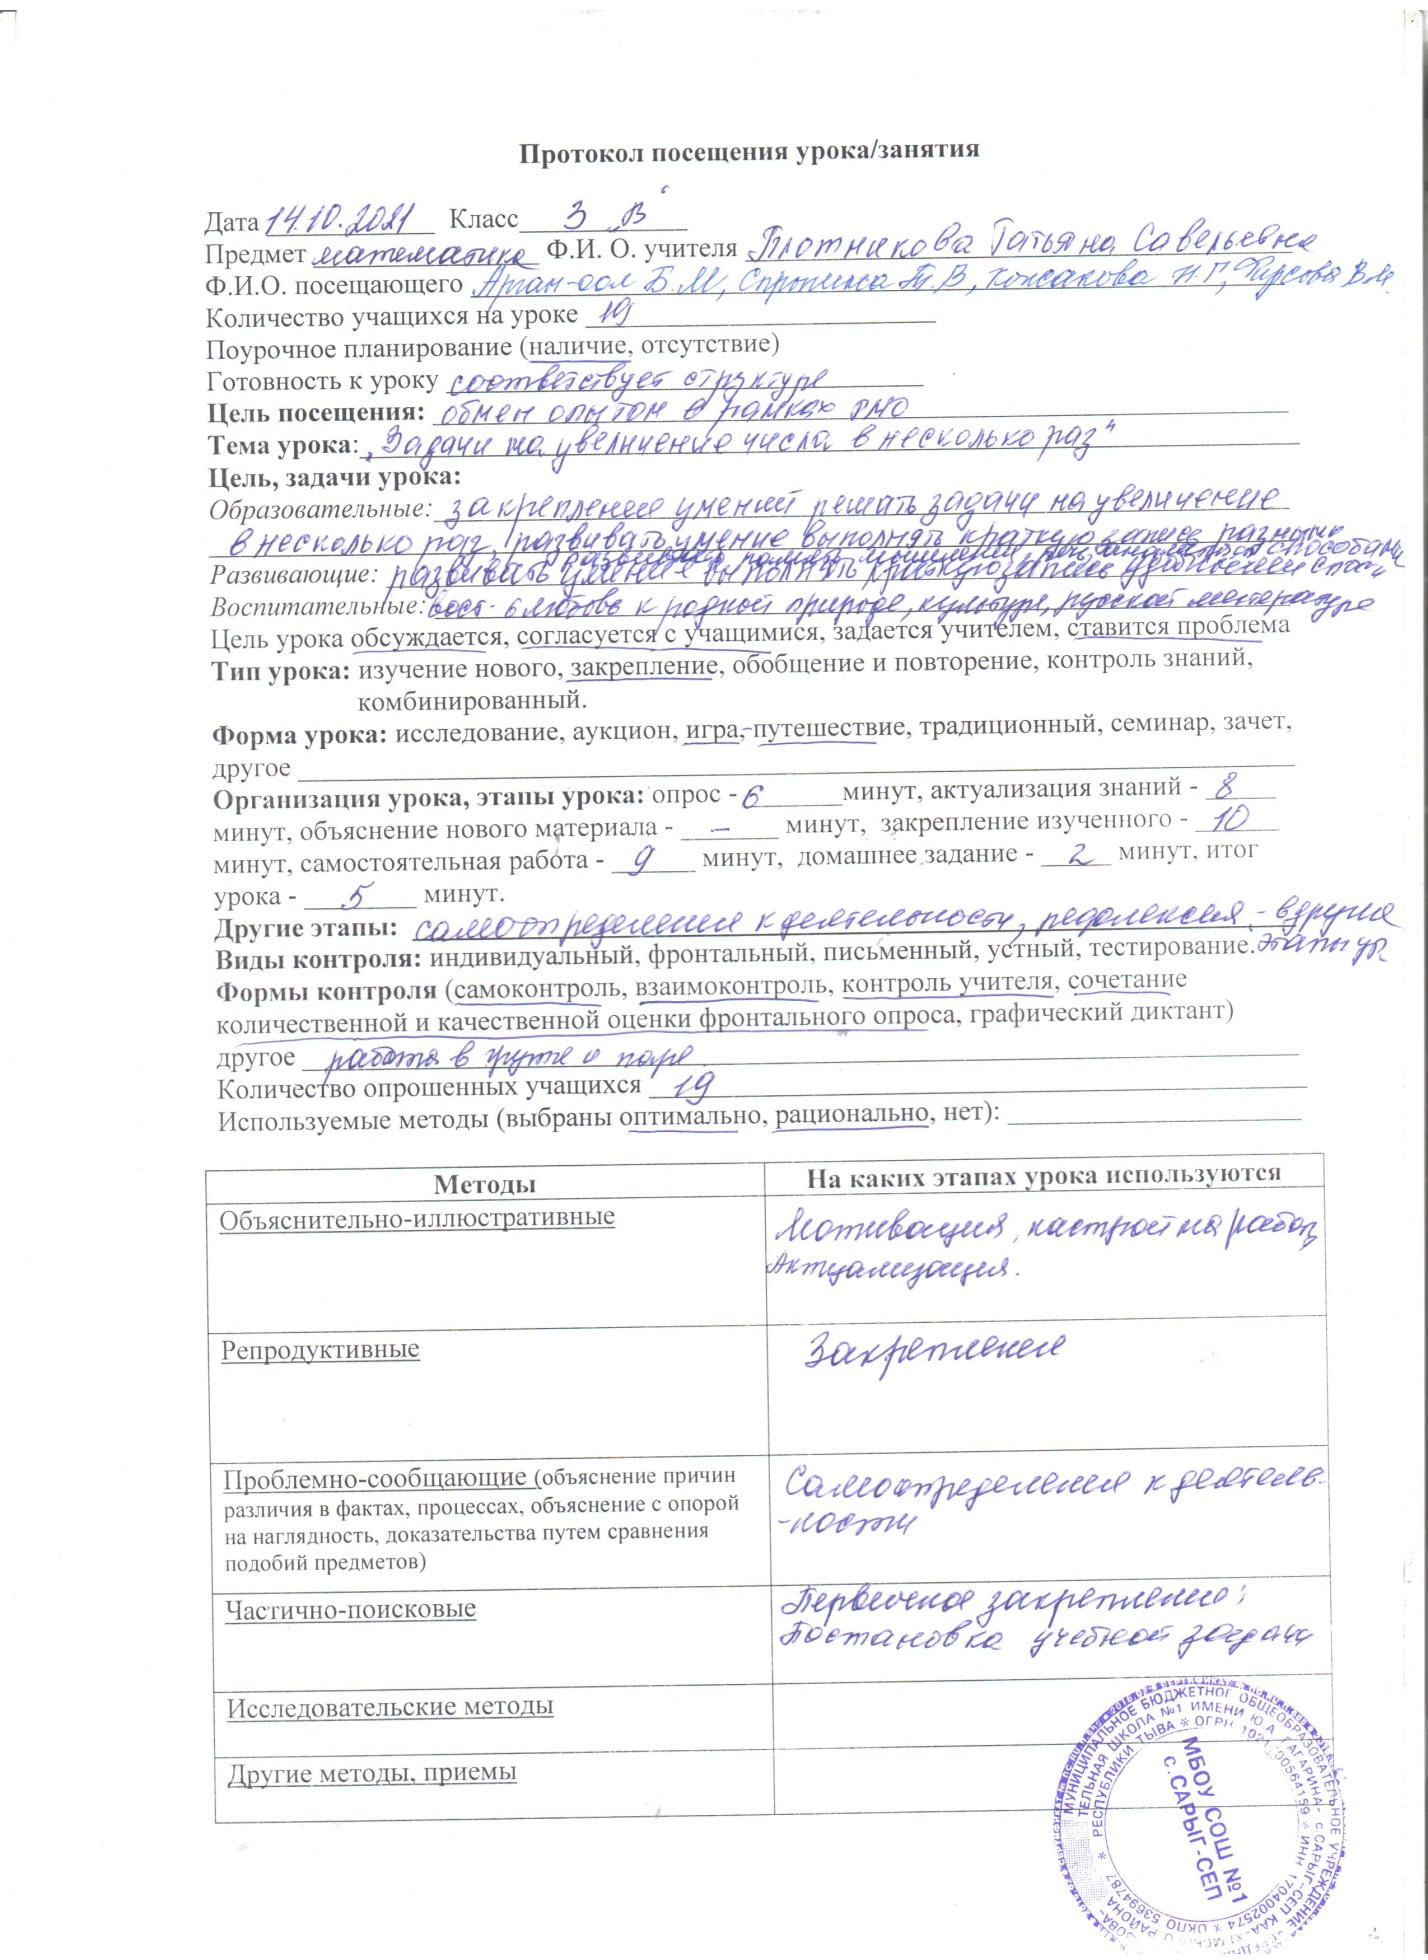 Протокол посещения урока/занятия
Дата 14.10.2021 Класс 3 „В“
Предмет математика Ф.И. О. учителя Плотникова Татьяна Савельевна
Ф.И.О. посещающего Арган-оол Б.М,
Количество учащихся на уроке 19
Поурочное планирование (наличие, отсутствие)
Готовность к уроку соответствует структуре
Цель посещения: обмен опытом в рамках РМО
Тема урока: „Задачи на увеличение числа в несколько раз“
Цель, задачи урока:
Образовательные: закрепление умений решать задачи на увеличение
в несколько раз, развивать умение выполнять краткую запись разными
способами
Развивающие: развивать умение выполнять краткую запись
Воспитательные: восп-е любовь к родной природе, культуре, русской литературе
Цель урока обсуждается, согласуется с учащимися, задается учителем, ставится проблема
Тип урока: изучение нового, закрепление, обобщение и повторение, контроль знаний,
комбинированный.
Форма урока: исследование, аукцион, игра, путешествие, традиционный, семинар, зачет,
другое
Организация урока, этапы урока: опрос - 6 минут, актуализация знаний - 8
минут, объяснение нового материала - – минут, закрепление изученного - 10
минут, самостоятельная работа - 9 минут, домашнее задание - 2 минут, итог
урока - 5 минут.
Другие этапы: самоопределение к деятельности, рефлексия - в другие
этапы ур.
Виды контроля: индивидуальный, фронтальный, письменный, устный, тестирование.
Формы контроля (самоконтроль, взаимоконтроль, контроль учителя, сочетание
количественной и качественной оценки фронтального опроса, графический диктант)
другое работа в группе и паре
Количество опрошенных учащихся 19
Используемые методы (выбраны оптимально, рационально, нет):
Методы На каких этапах урока используются
Объяснительно-иллюстративные Мотивация, настрой на работу
Актуализация.
Репродуктивные Закрепление
Проблемно-сообщающие (объяснение причин
различия в фактах, процессах, объяснение с опорой
на наглядность, доказательства путем сравнения
подобий предметов)
Самоопределение к деятель-
-ности
Частично-поисковые Первичное закрепление;
Постановка учебной задачи
Исследовательские методы
Другие методы, приемы
МУНИЦИПАЛЬНОЕ БЮДЖЕТНОЕ ОБЩЕОБРАЗОВАТЕЛЬНОЕ УЧРЕЖДЕНИЕ
ТЕЛЬНАЯ ШКОЛА №1 ИМЕНИ Ю.А. ГАГАРИНА- с.САРЫГ-СЕП
РЕСПУБЛИКИ ТЫВА * ОГРН * ИНН 1704002574 * ОКПО 53694787 *
МБОУ СОШ №1
с. САРЫГ-СЕП